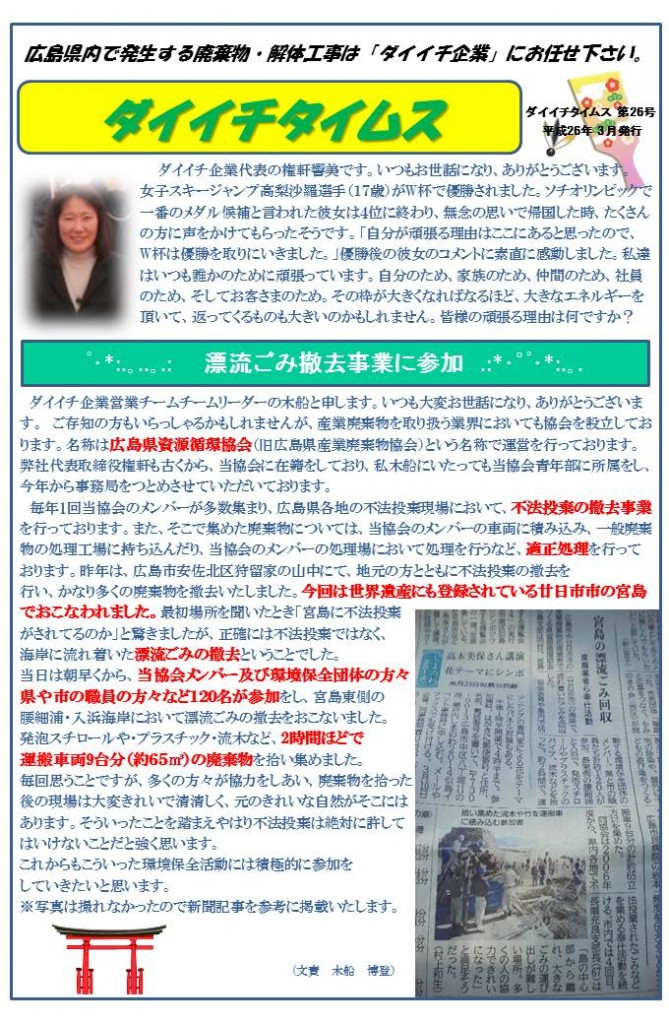 広島県内で発生する廃棄物・解体工事は「ダイイチ企業」にお任せ下さい。
ダイイチタイムス
ダイイチタイムス 第26号
平成26年 3月発行
ダイイチ企業代表の権軒馨美です。いつもお世話になり、ありがとうございます。
女子スキージャンプ高梨沙羅選手(17歳)がW杯で優勝されました。ソチオリンピックで
一番のメダル候補と言われた彼女は4位に終わり、無念の思いで帰国した時、たくさん
の方に声をかけてもらったそうです。「自分が頑張る理由はここにあると思ったので、
W杯は優勝を取りにいきました。」優勝後の彼女のコメントに素直に感動しました。私達
はいつも誰かのために頑張っています。自分のため、家族のため、仲間のため、社員
のため、そしてお客さまのため。その枠が大きくなればなるほど、大きなエネルギーを
頂いて、返ってくるものも大きいのかもしれません。皆様の頑張る理由は何ですか？
漂流ごみ撤去事業に参加
ダイイチ企業営業チームチームリーダーの木船と申します。いつも大変お世話になり、ありがとうございま
す。 ご存知の方もいらっしゃるかもしれませんが、産業廃棄物を取り扱う業界においても協会を設立してお
ります。名称は広島県資源循環協会(旧広島県産業廃棄物協会)という名称で運営を行っております。
弊社代表取締役権軒も古くから、当協会に在籍をしており、私木船にいたっても当協会青年部に所属をし、
今年から事務局をつとめさせていただいております。
毎年1回当協会のメンバーが多数集まり、広島県各地の不法投棄現場において、不法投棄の撤去事業
を行っております。また、そこで集めた廃棄物については、当協会のメンバーの車両に積み込み、一般廃棄
物の処理工場に持ち込んだり、当協会のメンバーの処理場において処理を行うなど、適正処理を行って
おります。昨年は、広島市安佐北区狩留家の山中にて、地元の方とともに不法投棄の撤去を
行い、かなり多くの廃棄物を撤去いたしました。今回は世界遺産にも登録されている廿日市市の宮島
でおこなわれました。最初場所を聞いたとき「宮島に不法投棄
がされてるのか」と驚きましたが、正確には不法投棄ではなく、
海岸に流れ着いた漂流ごみの撤去ということでした。
当日は朝早くから、当協会メンバー及び環境保全団体の方々
県や市の職員の方々など120名が参加をし、宮島東側の
腰細浦・入浜海岸において漂流ごみの撤去をおこないました。
発泡スチロールや・プラスチック・流木など、2時間ほどで
運搬車両9台分(約65㎥)の廃棄物を拾い集めました。
毎回思うことですが、多くの方々が協力をしあい、廃棄物を拾った
後の現場は大変きれいで清清しく、元のきれいな自然がそこには
あります。そういったことを踏まえやはり不法投棄は絶対に許して
はいけないことだと強く思います。
これからもこういった環境保全活動には積極的に参加を
していきたいと思います。
※写真は撮れなかったので新聞記事を参考に掲載いたします。
(文責 木船 博登)
宮島の漂流ごみ回収
産廃業者ら奉仕活動
高木美保さん講演
花テーマにシンポ
拾い集めた流木や竹を運搬車
に積み込む参加者